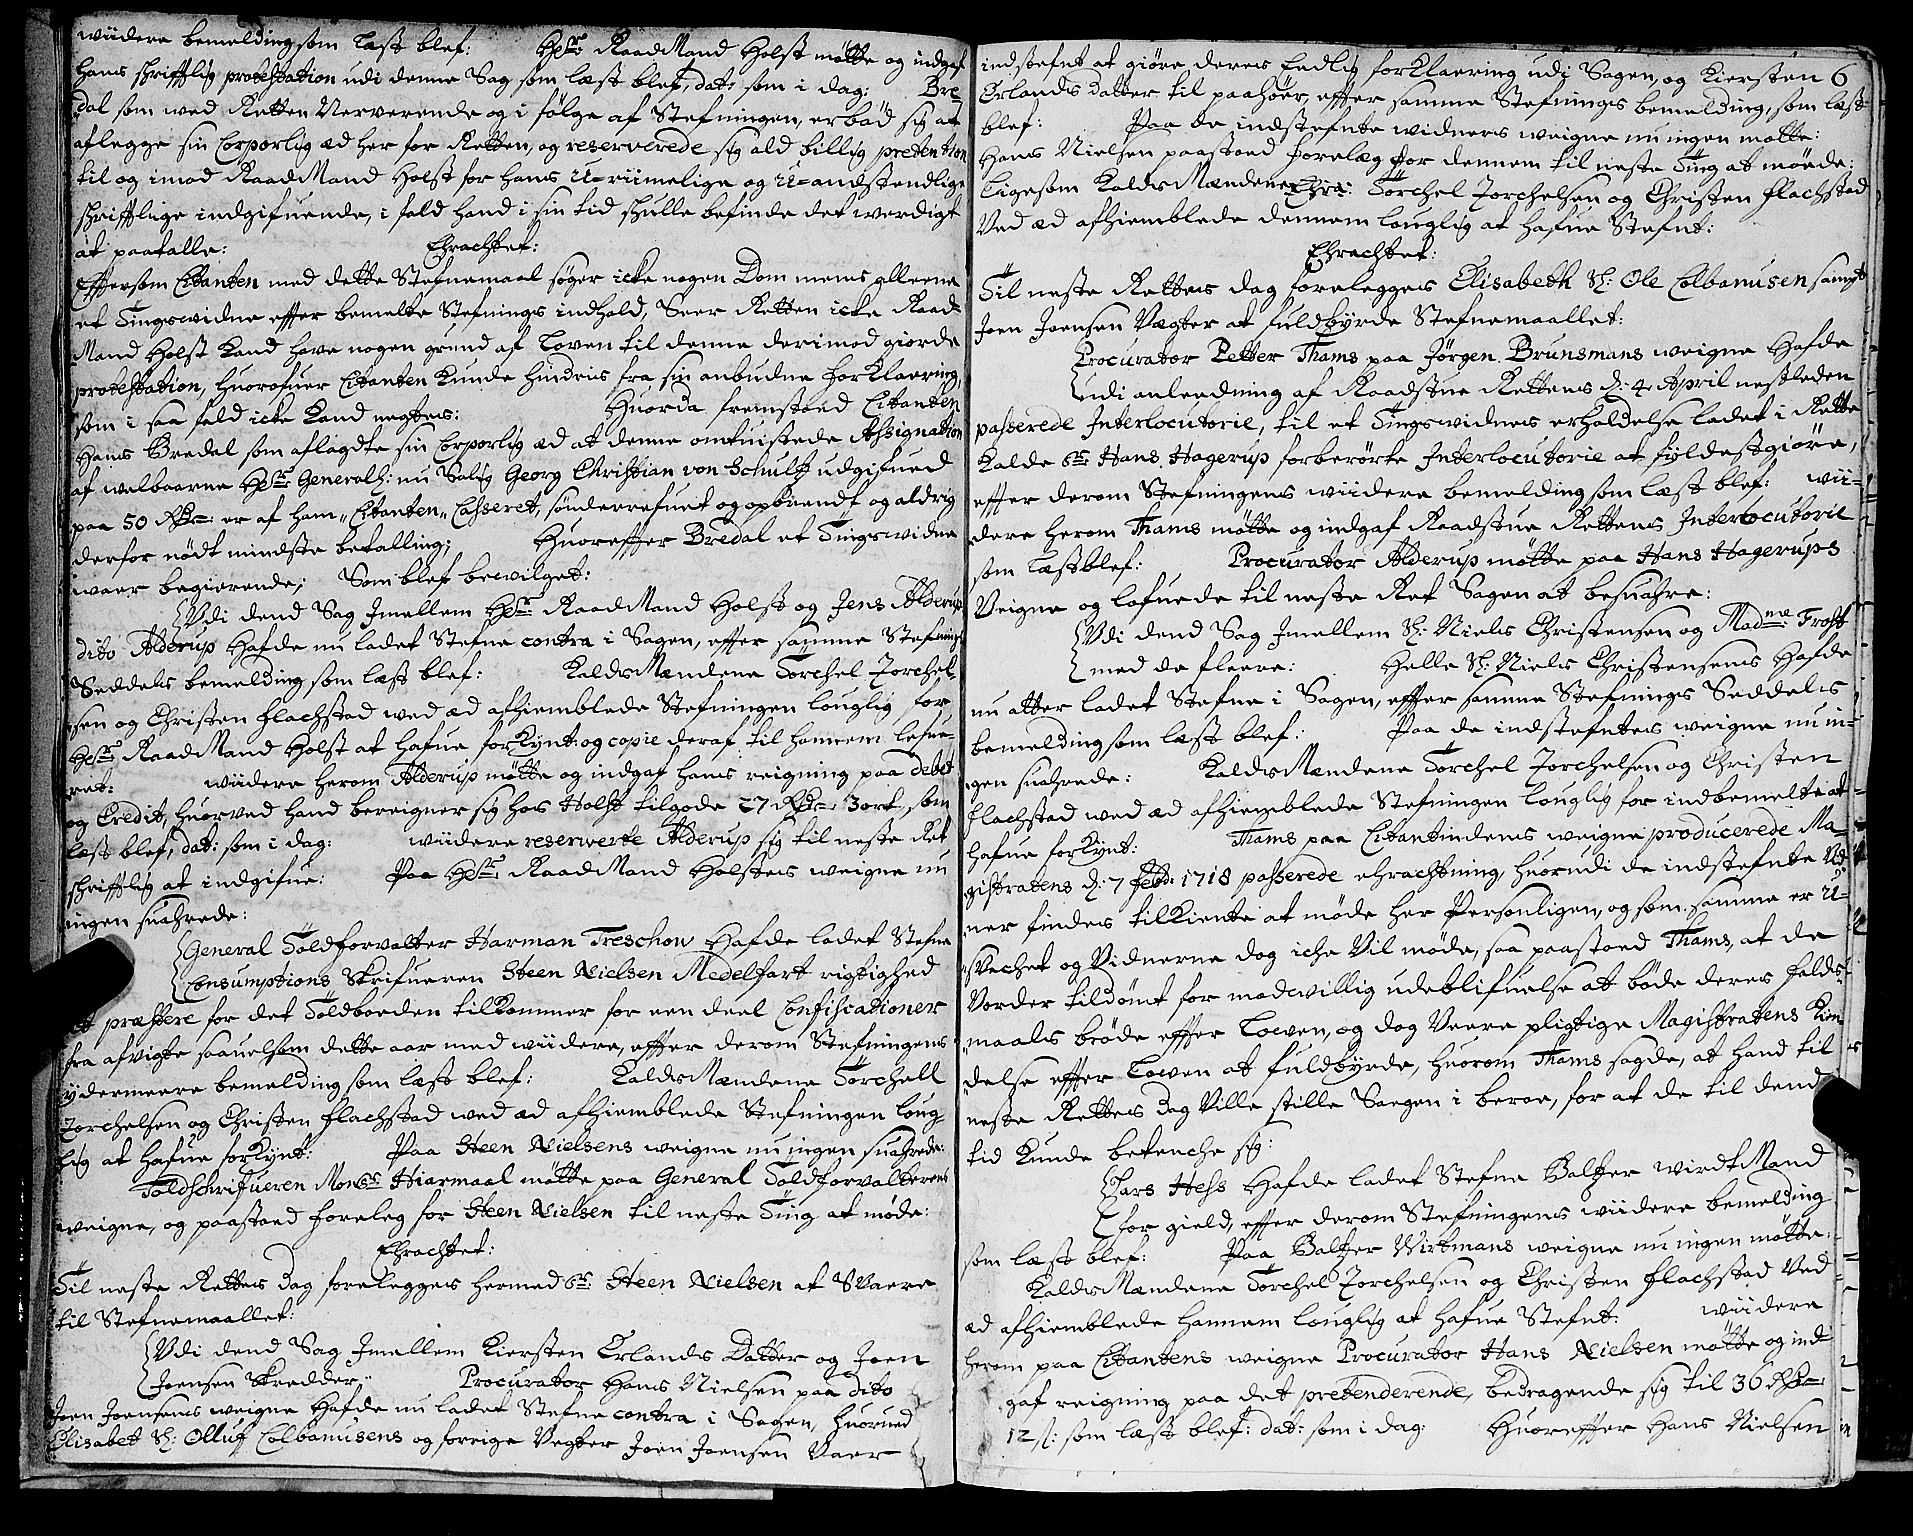 widere bemelding som læst blef: Hr: RaadMand Holst mötte og indgaf
hans schrifftlig protestation udi denne Sag som læst blef, dat: som i dag: Bre-
dal som ved Retten Nerverende og i fölge af Stefningen, erböd sig at
aflegge sin Corporlig æd her for Retten, og reserverede sig ald billig pretention
til og imod RaadMand Holst for hans U-riimelige og U-anstendlige
schrifftlige indgifuende, i fald hand i sin tid schulle befinde det werdigt
at paatalle: Eragtet:
Effterson Citanten med dette Stefnemaal söger icke nogen Dom mens allene
et Tingswidne effter bemelte Stefnings indhold, Seer Retten icke Raad-
Mand Holst kand have nogen grund af Loven til denne derimod giorde
protestation, huorofuer Citanten kunde hindris fra sin anbudne forklaering,
som i saa fald icke kand negtes: Huorda fremstoed Citanten
Hans Bredal som aflagde sin Corporlig æd at denne omtuistede Assignation
af welbaarne Hr: General: nu Salig Georg Christian von Schultz udgifued
paa 50 Rdr: er af ham, Citanten, Casseret, sönderrefuet og opbrendt og aldrig
derfor nödt mindste betalling; Huoreffter Bredal et Tingswidne
waer begierende; Som blef bewilget:
Udi dend Sag Imellem Hr: RaadMand Holst og Jens Alderup
dito Alderup hafde nu ladet Stefne contra i Sagen, effter samme Stefnings
Seddels bemelding som læst blef: KaldsMændene Torchel Torchel-
sen og Christen Flachstad wed æd afhiemblede Stefningen louglig for
Hr: RaadMand Holst at hafue forkynt: og copie deraf til hannem lefue-
ret: widere herom Alderup mötte og indgaf hans reigning paa debet
og Credit, huorved hand bereigner sig hos Holst tilgode 27 Rdr: 3 ort, som
læst blef, dat: som i dag: widere reserverte Alderup sig til neste Ret
schrifftlig at indgifue: Paa Hr: RaadMand Holstes weigne nu
ingen suahrede:
General Toldforvalter Harman Treschow hafde ladet Stefne
Consumptions Skrifueren Steen Nielsen Medelfart rigtighed
at præstere for det Toldboeden tilkommer for een deel Confiscationer
fra afvigte saauelsom dette aar med widere, effter derom Stefningens
ydermeere bemelding som læst blef: KaldsMændene Torchell
Torchelsen og Christen Flachstad wed æd afhiemblede Stefningen loug-
lig at hafue forkynt: Paa Steen Nielsens weigne nu ingen suahrede:
Toldschrifueren Monsr: Hiarmaal mötte paa General Toldforvalterens
weigne, og paastoed foreleg for Steen Nielsen til neste Ting at möde:
Eragtet:
Til neste Rettes dag forelegges hermed Sr: Steen Nielsen at SVaere
til Stefnemaallet:
Udi dend Sag Imellem Kiersten Erlands Datter og Joen
Joensen Skredder, Procurator Hans Nielsen paa dito
Joen Joensens weigne hafde nu ladet Stefne contra i Sagen, huorued
Elisabet Sl: Olluf Colbanusens og forrige Vegter Joen Joensen Vaer
indstefnt at giöre deres Eedlig forklaering udi Sagen, og Kiersten 6
Erlands datter til paahöer, effter samme Stefnings bemelding, som læst
blef: Paa de indstefnte widners weigne nu ingen mötte:
Hans Nielsen paastoed forelæg for dennem til neste Ting at möede:
Ligesom KaldsMændene Torchel Torchelsen og Christen Flachstad
Ved æd afhiemblede dennem louglig at hafue Stefnt:
Eragtet:
Til neste Rettes dag forelegges Elisabeth Sl: Ole Colbanusen sampt
Joen Joensen Vegter at fuldbyrde Stefnemaallet:
Procurator Petter Thams paa Jörgen Brunsmans weigne hafde
udi anleedning af Raadstue Rettens d: 4 April nestleden
passerede Interlocutorie, til et Tingswidnes erholdelse ladet i Rette
kalde Sr: Hans Hagerup forberörte Interlocutorie at fyldestgiöre,
effter derom Stefningens widere bemelding som læst blef: wi-
dere herom Thams mötte og indgaf Raadstue Rettens Interlocutorie
som læst blef: Procurator Alderup mötte paa Hans Hagerups
Veigne og lofuede til neste Ret Sagen at besuahre:
Udi dend Sag Imellem Sl: Niels Christensen og Madme: Frost
med de fleere: Helle Sl: Niels Christensens hafde
nu atter ladet Stefne i Sagen, effter samme Stefnings Seddels
bemelding som læst blef: Paa de indstefntes weigne nu in-
gen suahrede: KaldsMændene Torchel Torchelsen og Christen
Flachstad wed æd afhiemblede Stefningen louglig for indbemelte at
hafue forkynt: Thams paa Citantindens weigne producerede Ma-
gistratens d: 7 Febr: 1718 passerede eragtning, huorudi de indstefnte Vid-
ner findes tilkiente at möde her Personligen, og som samme er U-
Svechet og Vidnerne dog iche Vil möde, saa paastoed Thams, at de
Vorder tildömt for modwillig udeblifuelse at böde deres falds-
maals bröde effter Loven, og dog Veere pligtige Magistratens Kien-
delse effter Loven at fuldbyrde, huorom Thams sagde, at hand til
neste Rettes dag Ville stille Saegen i beroe, for at de til dend
tid kunde betenche sig:
Lars Hess hafde ladet Stefne Baltzer WirdtMand
for gield, effter derom Stefningens widere bemelding
som læst blef: Paa Baltzer Wirtmans weigne nu ingen mötte:
KaldsMændene Torchel Torchelsen og Christen Flachstad Ved
æd afhiemblede hannem louglig at hafue Stefnt: widere
herom paa Citantens weigne Procurator Hans Nielsen mötte og ind-
gaf reigning paa det pretenderende, bedragende sig til 36 Rdr:
12 sl: som læst blef: dat: som i dag: Huoreffter Hans Nielsen